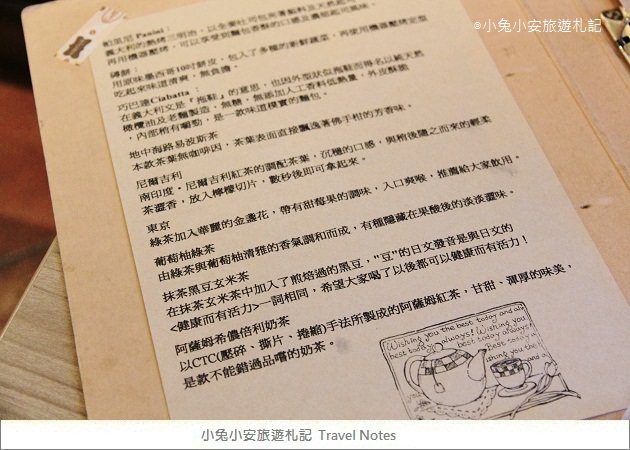 ®小兔小安旅遊札記
帕里尼 Panini：
義大利的熱烤三明治，以全麥吐司包夾著餡料及天然起司
再用機器壓烤，可以享受到麵包香酥的口感及濃郁起司風味。
磚餅：
用原味墨西哥10吋餅皮，包入了多種的新鮮蔬菜，再使用機器壓烤定型
吃起來味道清爽，無負擔。
巧巴達Ciabatta：
在義大利文是『拖鞋』的意思，也因外型狀似拖鞋而得名以純天然
橄欖油及老麵製造，無糖，無添加人工香料低熱量，外皮酥脆
，內部稍有嚼勁，是一款味道樸實的麵包。
地中海路易波斯茶
本款茶葉無咖啡因，茶葉表面直接飄逸著佛手柑的芳香味。
尼爾吉利
南印度。尼爾吉利紅茶的調配茶葉，沉穩的口感，與稍後隨之而來的輕柔
茶澀香，放入檸檬切片，數秒後即可拿起來。
東京
綠茶加入華麗的金盞花，帶有甜莓果的調味，入口爽喉，推薦給大家飲用。
葡萄柚綠茶
由綠茶與葡萄柚清雅的香氣調和而成，有種隱藏在果酸後的淡淡澀味。
抹茶黑豆玄米茶
在抹茶玄米茶中加入了煎焙過的黑豆，"豆"的日文發音是與日文的
<健康而有活力>一詞相同，希望大家喝了以後都可以健康而有活力！
阿薩姆希儂倍利奶茶
以CTC(壓碎、撕片、捲縮)手法所製成的阿薩姆紅茶，甘甜、渾厚的味美，
是款不能錯過品嚐的奶茶。
Wishing you the best today and al
best today always! Wishing you
best today always!
Best today a
shing you the
and a
小兔小安旅遊札記 Travel Notes